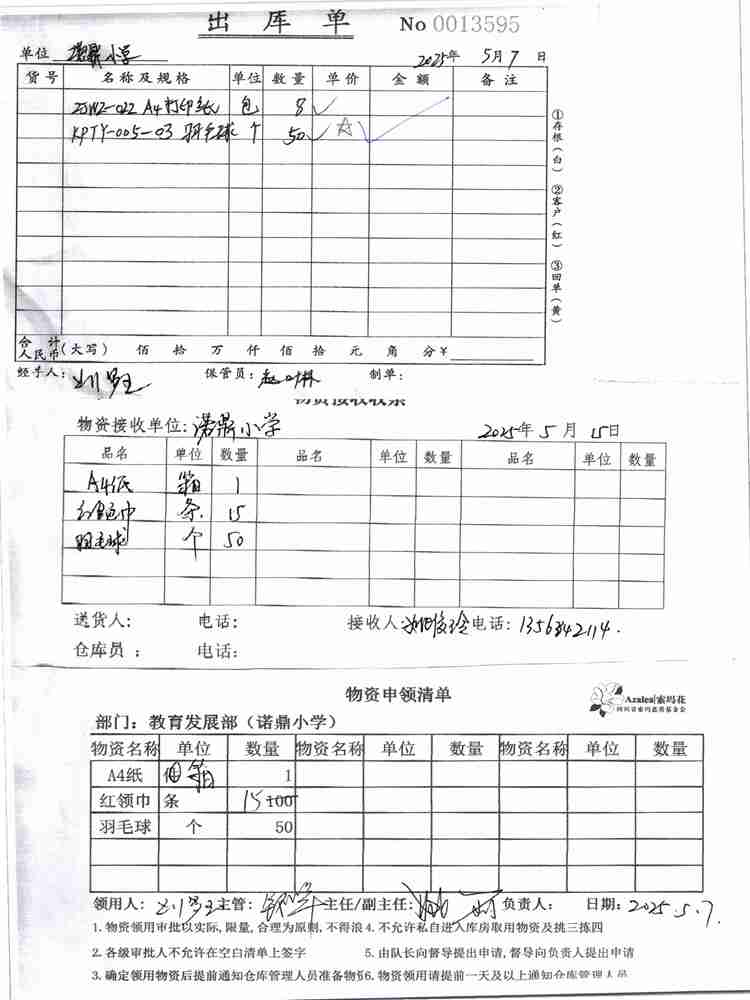 出 库 单 No 0013595
单位 诺鼎小学 2025年 5月 7 日
货号 名称及规格 单位 数量 单价 金额 备注
ZJWZ-022 A4打印纸 包 8
KPTY-005-03 羽毛球 个 50
①存根(白) ②客户(红) ③回单(黄)
合计人民币(大写) 佰 拾 万 仟 佰 拾 元 角 分 ¥
经手人: 保管员: 制单:
物资接收收条
物资接收单位: 诺鼎小学 2025年 5 月 15日
品名 单位 数量 品名 单位 数量 品名 单位 数量
A4纸 箱 1
红领巾 条 15
羽毛球 个 50
送货人: 电话: 接收人: 电话:
仓库员: 电话:
物资申领清单
Azalea|索玛花
四川省索玛慈善基金会
部门:教育发展部(诺鼎小学)
物资名称 单位 数量 物资名称 单位 数量 物资名称 单位 数量
A4纸 箱 1
红领巾 条 15 100
羽毛球 个 50
领用人: 主管: 主任/副主任: 负责人: 日期: 2025.5.7.
1.物资领用审批以实际,限量,合理为原则,不得浪 4.不允许私自进入库房取用物资及挑三拣四
2.各级审批人不允许在空白清单上签字 5.由队长向督导提出申请,督导向负责人提出申请
3.确定领用物资后提前通知仓库管理人员准备物资 6.物资领用请提前一天及以上通知仓库管理人员